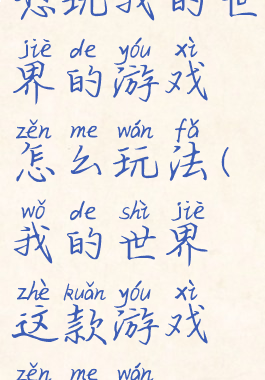 怎玩我的世
jiè de yóu xì
界的游戏
zěn me wán fǎ
怎么玩法(
wǒ de shì jiè
我的世界
zhè kuǎn yóu xì
这款游戏
zěn me wán